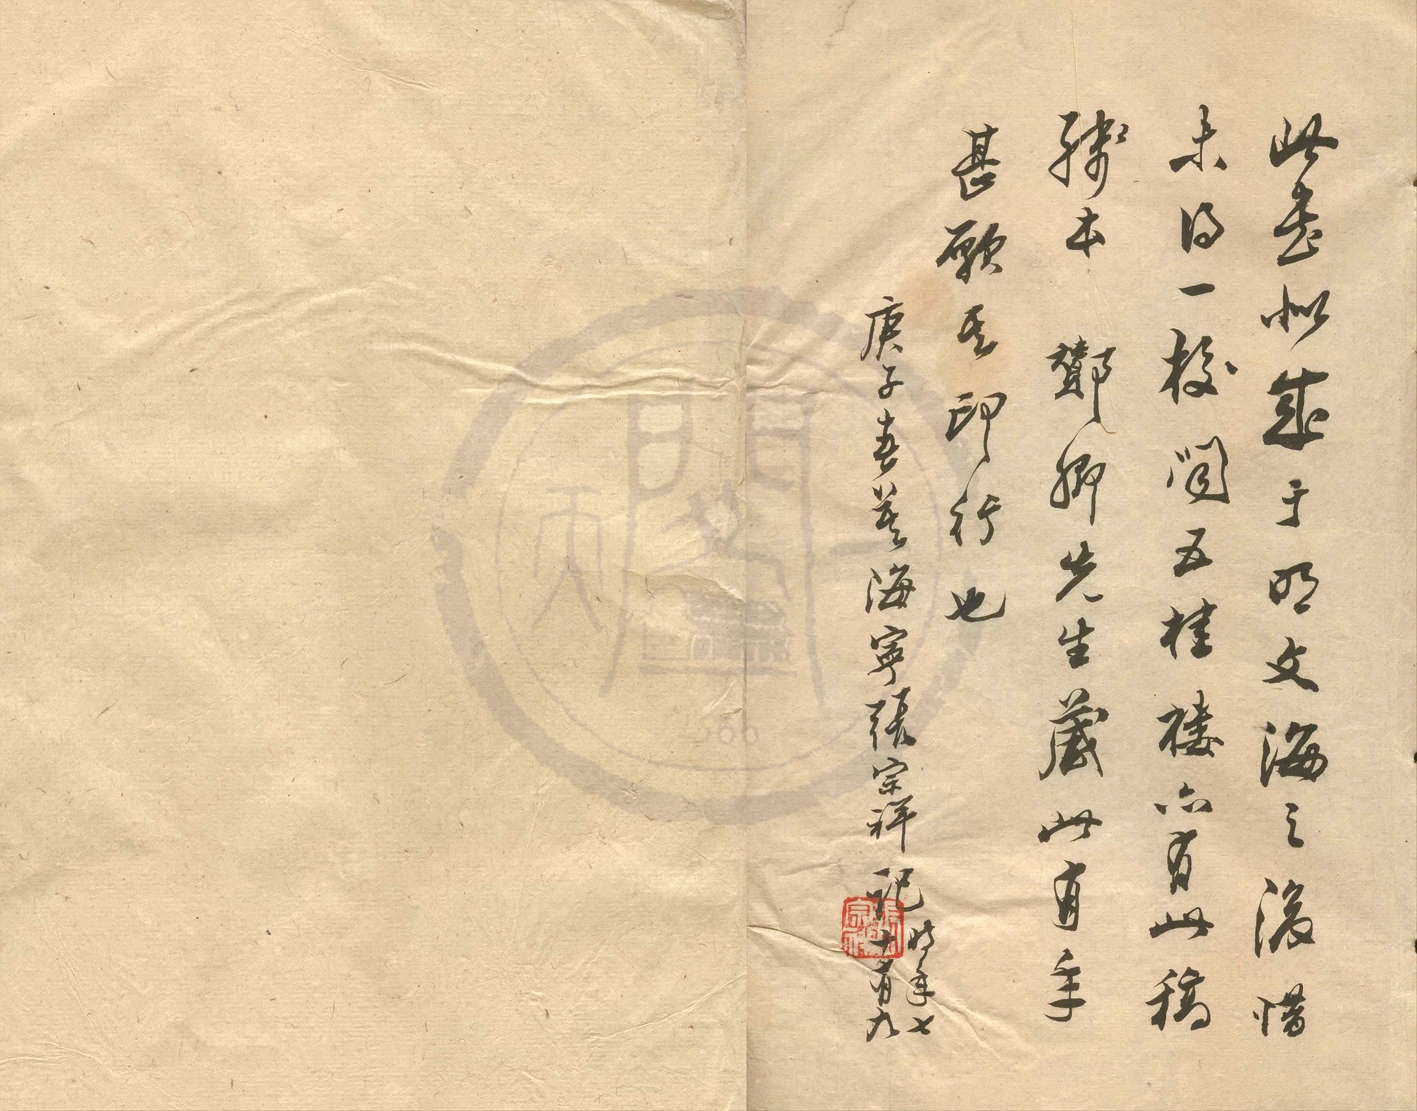 此書似成于明文海之後惜
未得一校聞五桂樓亦有此稿
殘本 酇卿先生藏此有年
甚願其印行也
庚子春莫海寧張宗祥記
時年七
十有九
天一閣
1566